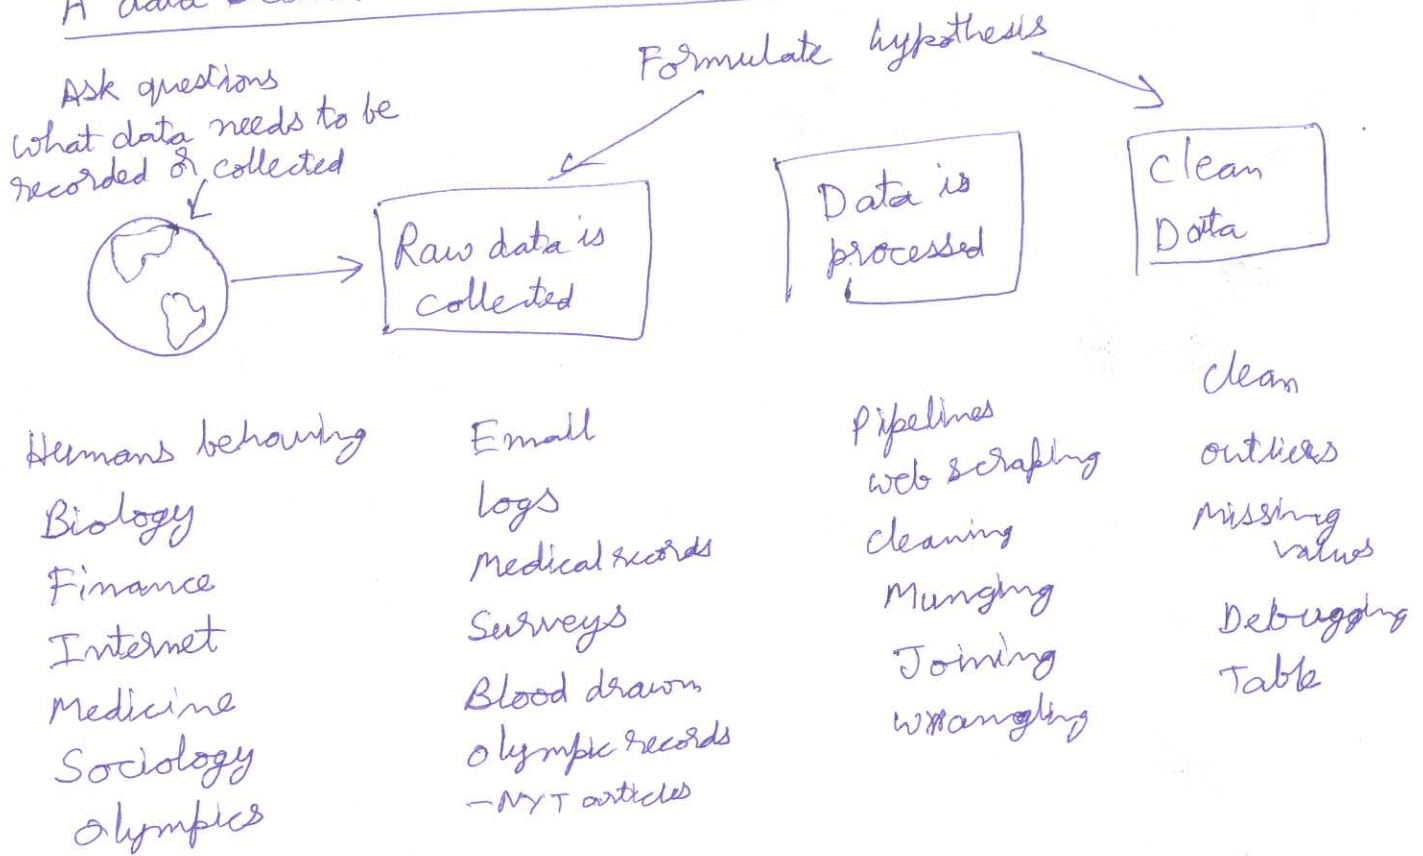 A data
Formulate hypothesis
Ask questions
what data needs to be
recorded or collected
Raw data is
collected
Data is
processed
Clean
Data
Humans behaving
Biology
Finance
Internet
Medicine
Sociology
Olympics
Email
logs
Medical records
Surveys
Blood drawn
Olympic records
- NYT articles
Pipelines
web scraping
cleaning
Munging
Joining
wrangling
clean
outliers
Missing
values
Debugging
Table